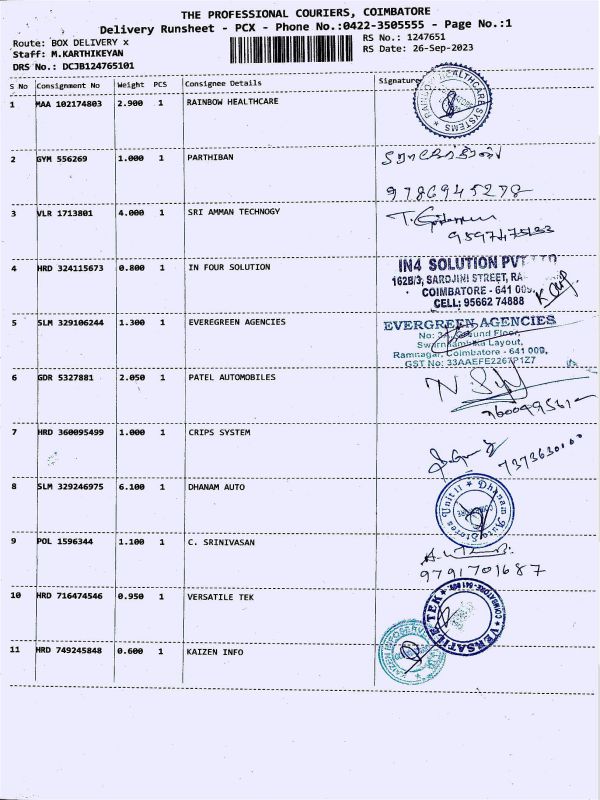 THE PROFESSIONAL COURIERS, COIMBATORE
Delivery Runsheet - PCX - Phone No.:0422-3505555 - Page No.:1
Route: BOX DELIVERY x
RS No.: 1247651
Staff: M.KARTHIKEYAN
RS Date: 26-Sep-2023
DRS No.: DCJB124765101
S No Consignment No Weight PCS Consignee Details Signature
1 MAA 102174803 2.900 1 RAINBOW HEALTHCARE
RAINBOW HEALTHCARE SYSTEMS
2 GYM 556269 1.000 1 PARTHIBAN
9786945278
3 VLR 1713801 4.000 1 SRI AMMAN TECHNOGY
4 HRD 324115673 0.800 1 IN FOUR SOLUTION
IN4 SOLUTION PVT
162B/3, SAROJINI STREET,
COIMBATORE - 641 009,
CELL: 95662 74888
5 SLM 329106244 1.300 1 EVEREGREEN AGENCIES
EVERGREEN AGENCIES
Ground Floor,
Swarnambika Layout,
Ramnagar, Coimbatore - 641 009,
GST No:
6 GDR 5327881 2.050 1 PATEL AUTOMOBILES
7 HRD 360095499 1.000 1 CRIPS SYSTEM
8 SLM 329246975 6.100 1 DHANAM AUTO
Dhanam Auto Stores Unit II
9 POL 1596344 1.100 1 C. SRINIVASAN
9791701687
10 HRD 716474546 0.950 1 VERSATILE TEK
VERSATILE TEK
11 HRD 749245848 0.600 1 KAIZEN INFO